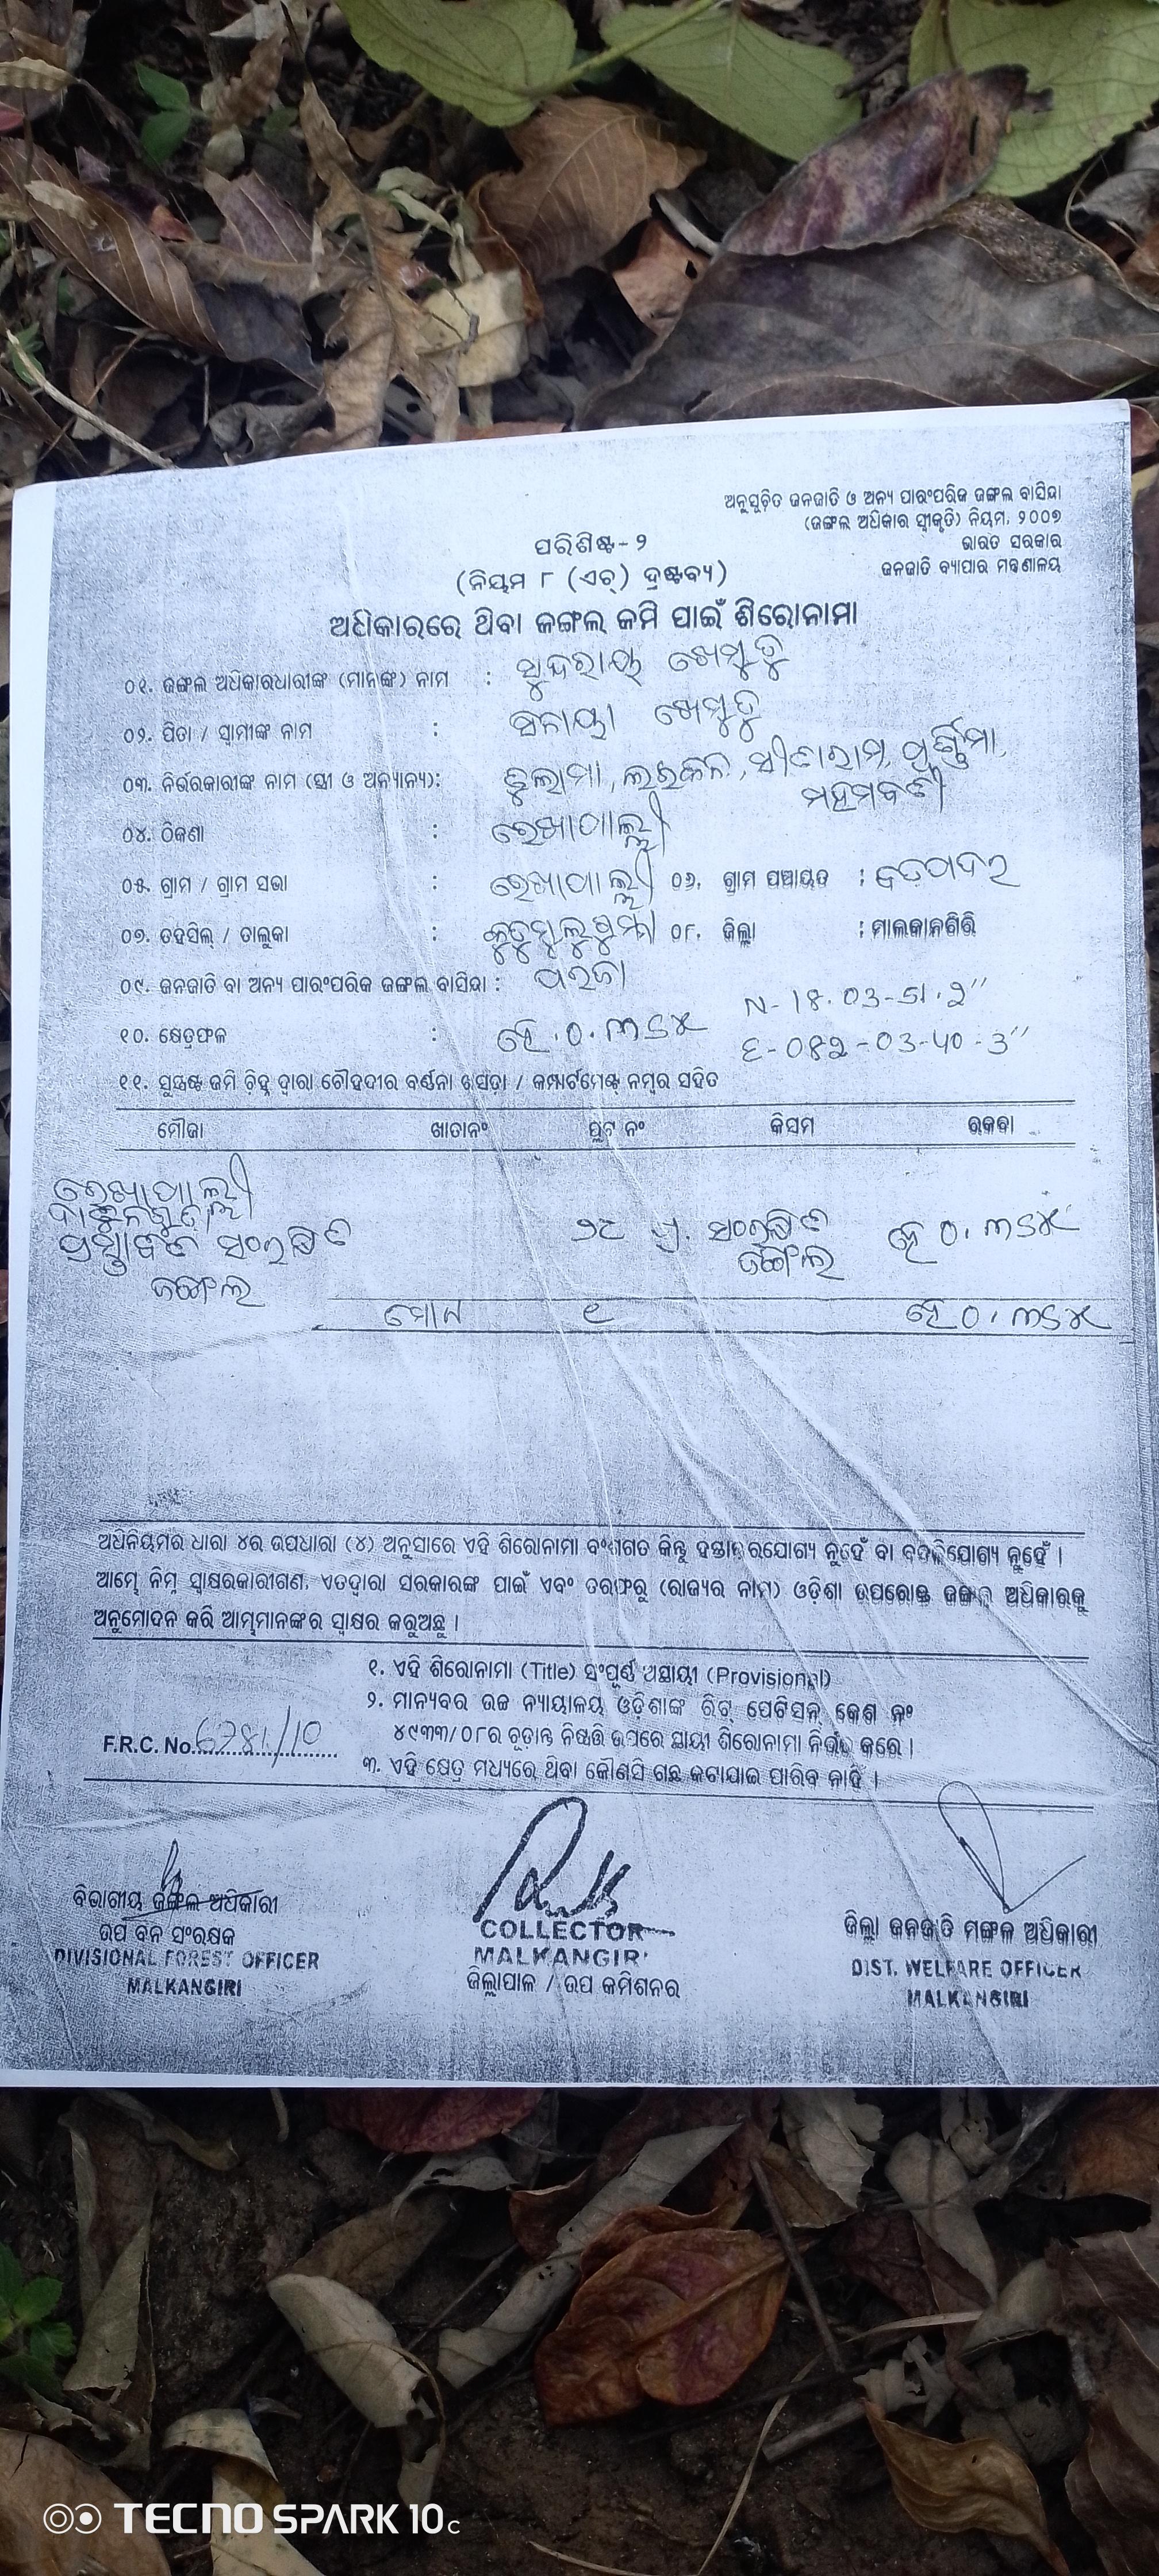 ଅନୁସୂଚିତ ଜନଜାତି ଓ ଅନ୍ୟ ପାରଂପରିକ ଜଙ୍ଗଲ ବାସିନ୍ଦା
(ଜଙ୍ଗଲ ଅଧିକାର ସ୍ୱୀକୃତି) ନିୟମ, ୨୦୦୭
ଭାରତ ସରକାର
ଜନଜାତି ବ୍ୟାପାର ମନ୍ତ୍ରଣାଳୟ
ପରିଶିଷ୍ଟ-୨
(ନିୟମ ୮ (ଏଚ୍) ଦ୍ରଷ୍ଟବ୍ୟ)
ଅଧିକାରରେ ଥିବା ଜଙ୍ଗଲ ଜମି ପାଇଁ ଶିରୋନାମା
୦୧. ଜଙ୍ଗଲ ଅଧିକାରଧାରୀଙ୍କ (ମାନଙ୍କ) ନାମ :
୦୨. ପିତା / ସ୍ୱାମୀଙ୍କ ନାମ :
୦୩. ନିର୍ଭରକାରୀଙ୍କ ନାମ (ସ୍ତ୍ରୀ ଓ ଅନ୍ୟାନ୍ୟ): ସୀତାରାମ, ପୂର୍ଣ୍ଣିମା,
୦୪. ଠିକଣା : ରେଖାପାଲ୍ଲୀ
୦୫. ଗ୍ରାମ / ଗ୍ରାମ ସଭା : ରେଖାପାଲ୍ଲୀ ୦୬. ଗ୍ରାମ ପଞ୍ଚାୟତ : ବଡ଼ପଦର
୦୭. ତହସିଲ୍ / ତାଲୁକା : କୁଡୁମୁଲୁଗୁମ୍ମା ୦୮. ଜିଲ୍ଲା : ମାଲକାନଗିରି
୦୯. ଜନଜାତି ବା ଅନ୍ୟ ପାରଂପରିକ ଜଙ୍ଗଲ ବାସିନ୍ଦା : ପରଜା
N-18-03-51.2"
୧୦. କ୍ଷେତ୍ରଫଳ : ହେ.୦.୩୫୪ E-082-03-40-3"
୧୧. ସୁସ୍ପଷ୍ଟ ଜମି ଚିହ୍ନ ଦ୍ୱାରା ଚୌହଦୀର ବର୍ଣ୍ଣନା ଖସଡ଼ା / କମ୍ପାର୍ଟମେଣ୍ଟ ନମ୍ବର ସହିତ
ମୌଜା ଖାତାନଂ ପ୍ଲଟ ନଂ କିସମ ରକବା
ରେଖାପାଲ୍ଲୀ
ପ୍ରସ୍ତାବିତ ସଂରକ୍ଷିତ ପ୍ର. ସଂରକ୍ଷିତ ହେ ୦.୩୫୪
ଜଙ୍ଗଲ ଜଙ୍ଗଲ
ମୋଟ ୧ ହେ ୦.୩୫୪
ଅଧିନିୟମର ଧାରା ୪ର ଉପଧାରା (୪) ଅନୁସାରେ ଏହି ଶିରୋନାମା ବଂଶଗତ କିନ୍ତୁ ହସ୍ତାନ୍ତରଯୋଗ୍ୟ ନୁହେଁ ବା ବଦଳିଯୋଗ୍ୟ ନୁହେଁ ।
ଆମ୍ଭେ ନିମ୍ନ ସ୍ୱାକ୍ଷରକାରୀଗଣ, ଏତଦ୍ୱାରା ସରକାରଙ୍କ ପାଇଁ ଏବଂ ତରଫରୁ (ରାଜ୍ୟର ନାମ) ଓଡ଼ିଶା ଉପରୋକ୍ତ ଜଙ୍ଗଲ ଅଧିକାରକୁ
ଅନୁମୋଦନ କରି ଆମ୍ଭମାନଙ୍କର ସ୍ୱାକ୍ଷର କରୁଅଛୁ ।
୧. ଏହି ଶିରୋନାମା (Title) ସଂପୂର୍ଣ୍ଣ ଅସ୍ଥାୟୀ (Provisional)
୨. ମାନ୍ୟବର ଉଚ୍ଚ ନ୍ୟାୟାଳୟ ଓଡ଼ିଶାଙ୍କ ରିଟ୍ ପେଟିସନ୍ କେଶ ନଂ
୪୯୩୩/୦୮ର ଚୂଡ଼ାନ୍ତ ନିଷ୍ପତ୍ତି ଉପରେ ସ୍ଥାୟୀ ଶିରୋନାମା ନିର୍ଭର କରେ ।
F.R.C. No. 6781/10
୩. ଏହି କ୍ଷେତ୍ର ମଧ୍ୟରେ ଥିବା କୌଣସି ଗଛ କଟାଯାଇ ପାରିବ ନାହିଁ ।
ବିଭାଗୀୟ ଜଙ୍ଗଲ ଅଧିକାରୀ
ଉପ ବନ ସଂରକ୍ଷକ
DIVISIONAL FOREST OFFICER
MALKANGIRI
COLLECTOR
MALKANGIRI
ଜିଲ୍ଲାପାଳ / ଉପ କମିଶନର
ଜିଲ୍ଲା ଜନଜାତି ମଙ୍ଗଳ ଅଧିକାରୀ
DIST. WELFARE OFFICER
MALKANGIRI
TECNO SPARK 10C